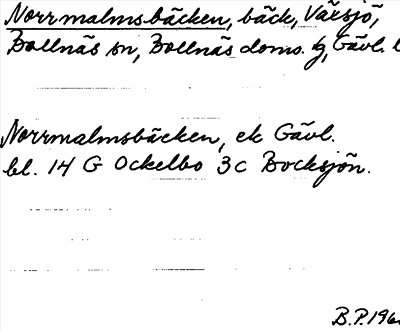 Norrmalmsbäcken, bäck, Växsjö,
Bollnäs sn, Bollnäs doms. tg, Gävl. l
Norrmalmsbäcken, ek Gävl.
bl. 14 G Ockelbo 3c Bocksjön.
B.P.196